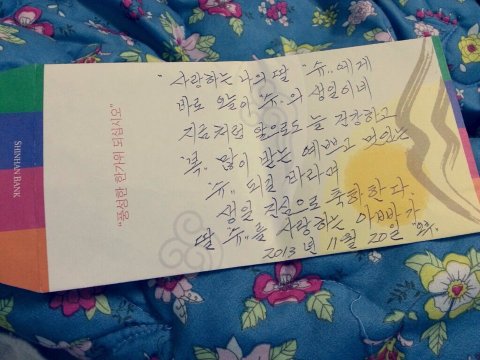 "사랑하는 나의 딸 "슈"에게
바로 오늘이 "슈"의 생일이네
지금처럼 앞으로도 늘 건강하고
"복" 많이 받는 예쁘고 멋있는
"슈" 되길 바라며
생일 진심으로 축하한다.
딸 "슈"를 사랑하는 아빠가
2013년 11월 20일
"풍성한 한가위 되십시오"
SHINHAN BANK